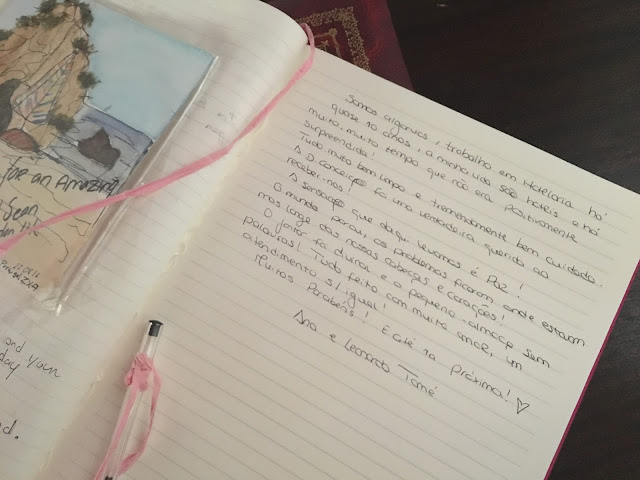 for an Amazing
Sean
and your
day
d.
Somos algarvios, trabalho em Hotelaria há
quase 10 anos, a minha vida são hotéis e há
muito, muito tempo que não era positivamente
surpreendida!
Tudo muito bem limpo e tremendamente bem cuidado.
A D. Conceição foi uma verdadeira querida ao
receber-nos!
A sensação que daqui levamos é Paz!
O mundo parou, os problemas ficaram onde estavam
mas longe das nossas cabeças e corações!
O jantar foi divinal e o pequeno-almoço sem
palavras! Tudo feito com muito amor, um
atendimento s/ igual!
Muitos Parabéns! E até à próxima! ♡
Ana e Leonardo Tomé